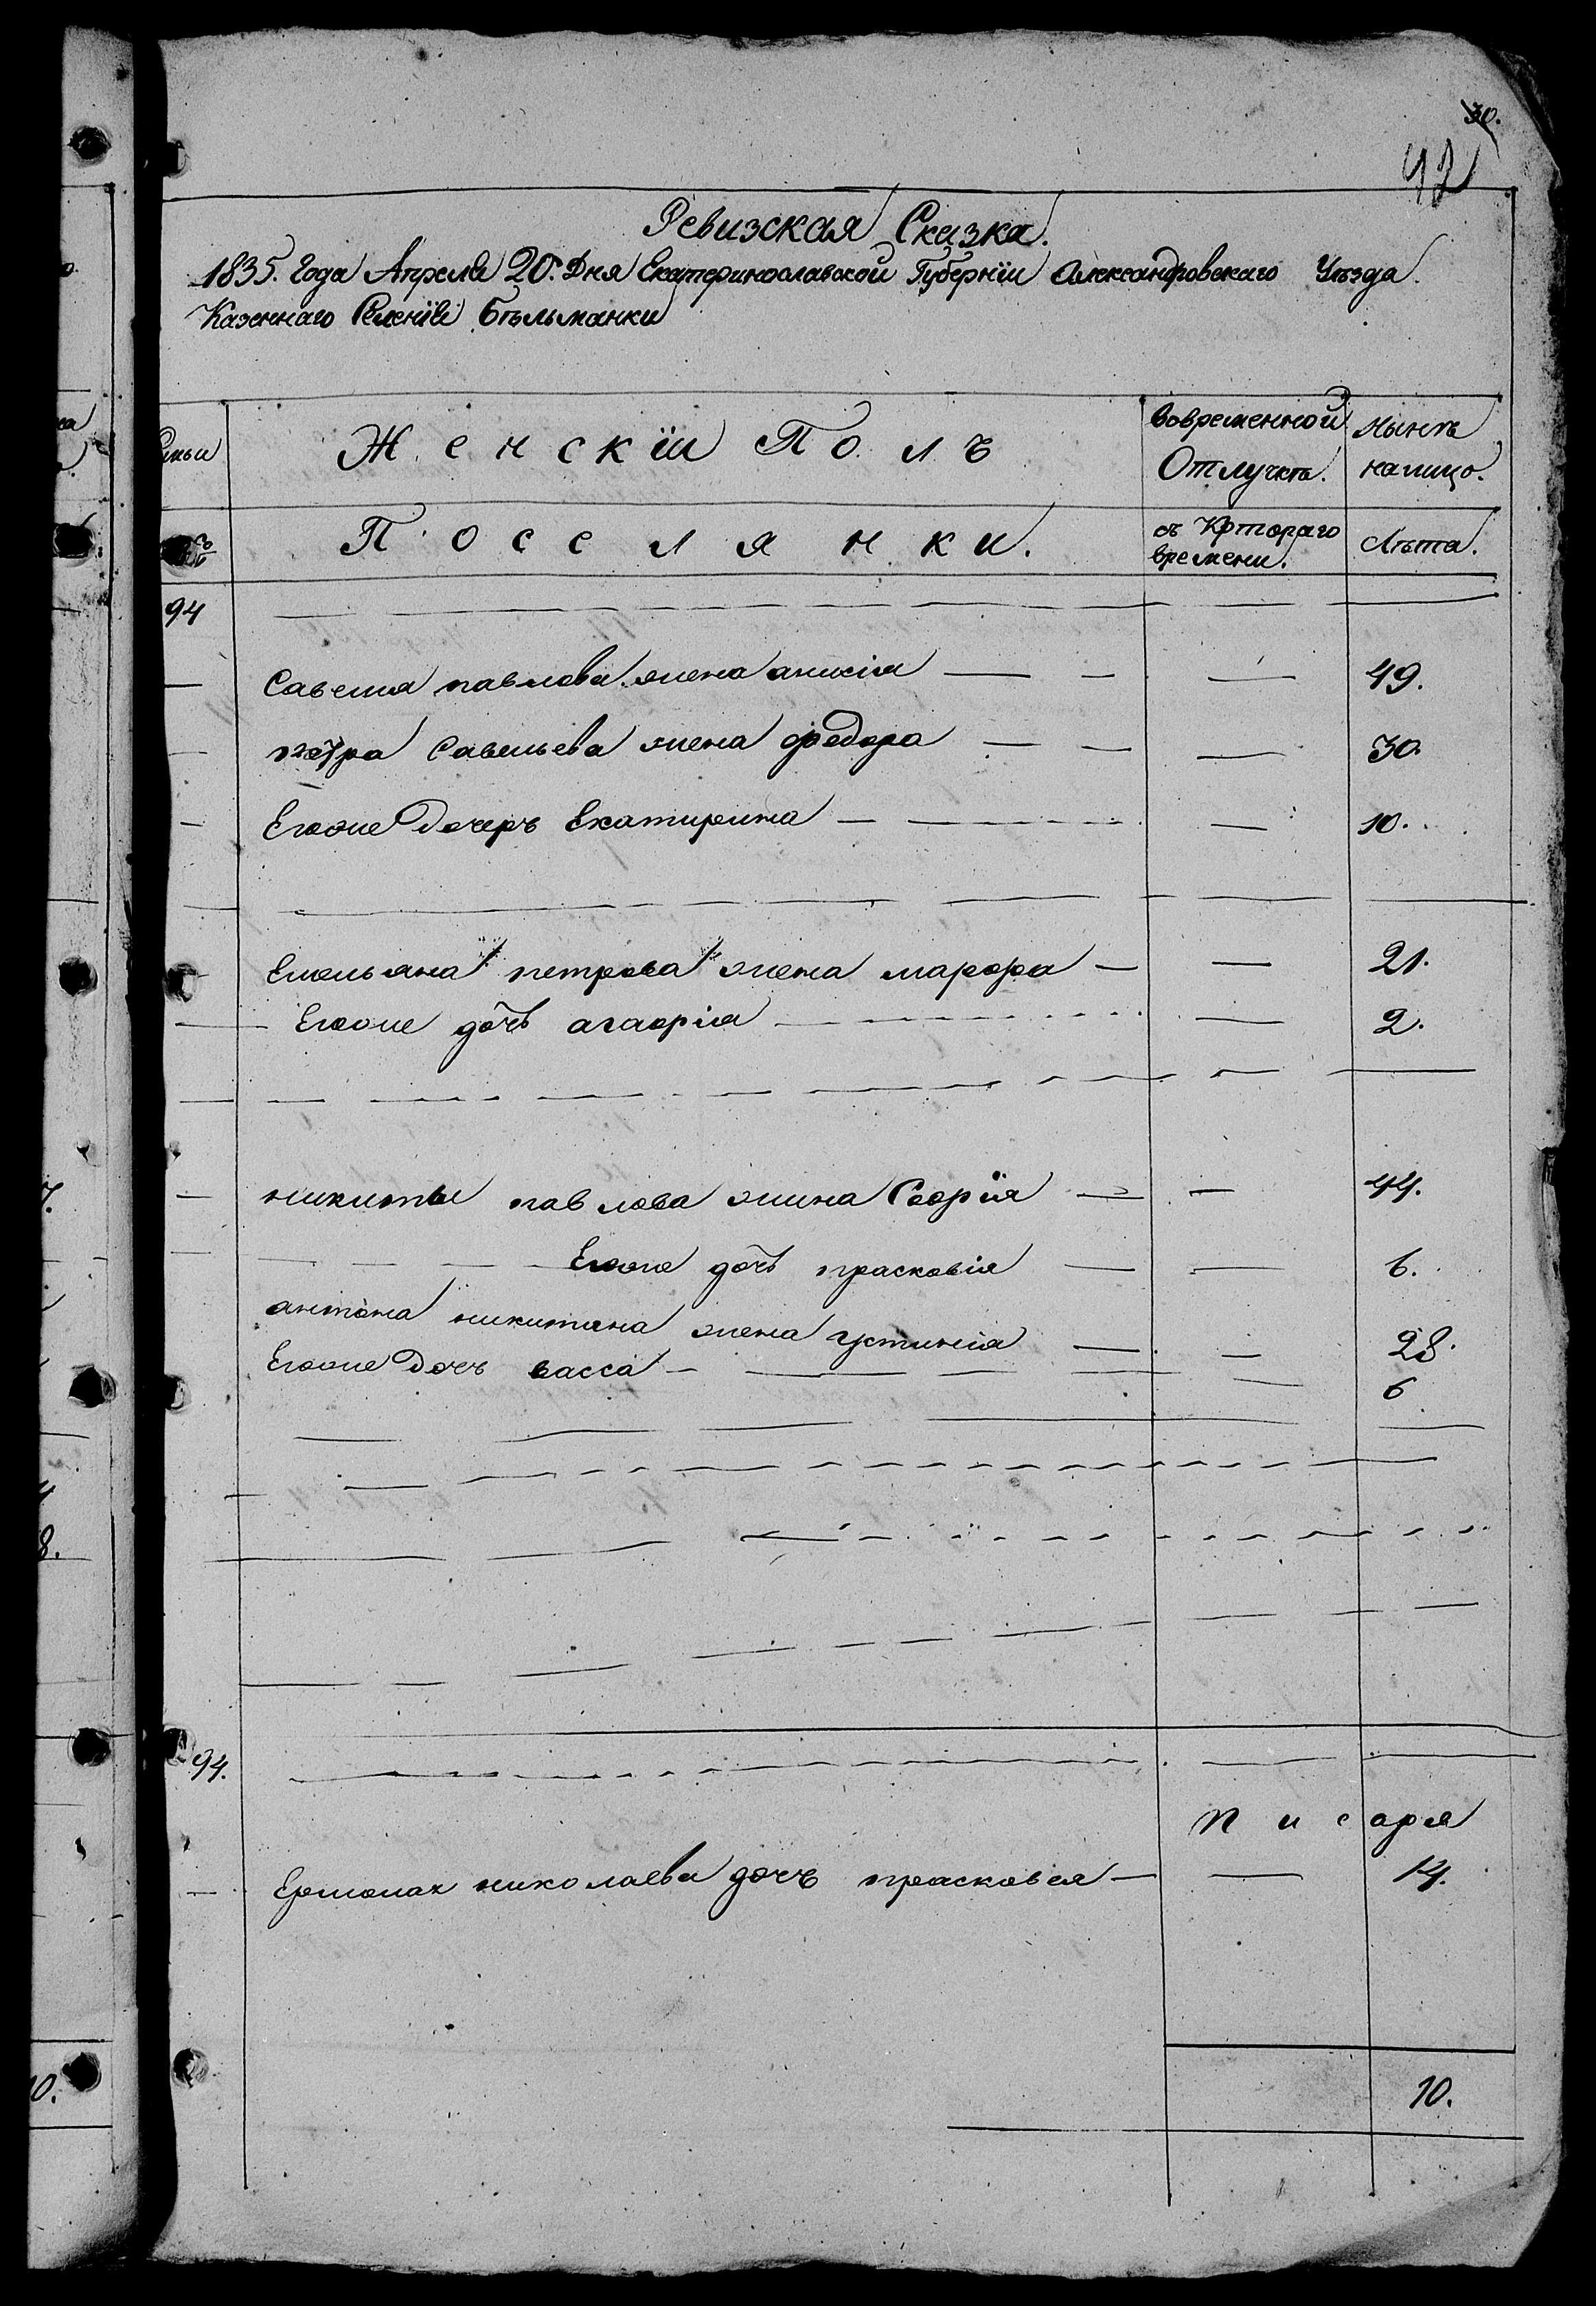 30.
42
Ревизская Сказка.
1835. Года Апреля 20. Дня Екатеринославской Губернїи Александровскаго Уѣзда
Казеннаго Селенїя Бѣльманки
Женскїй Полъ
Вовременной Отлучкѣ.
Нынѣ налицо.
№
Посселянки.
съ Котораго времени.
Лѣта.
94
Савелия павлова жена анисія 49.
петра Савельева жена федора 30.
Егоже Дочеръ Екатирина 10.
Емельяна петрова жена марфа 21.
Егоже дочь агафія 2.
никиты павлова жина Софрїя 44.
Егоже дочь прасковія 6.
антона никитина жена устинія 28.
Егоже Дочь васса 6
94.
писаря
Ермолая николаева дочь прасковея 14.
10.